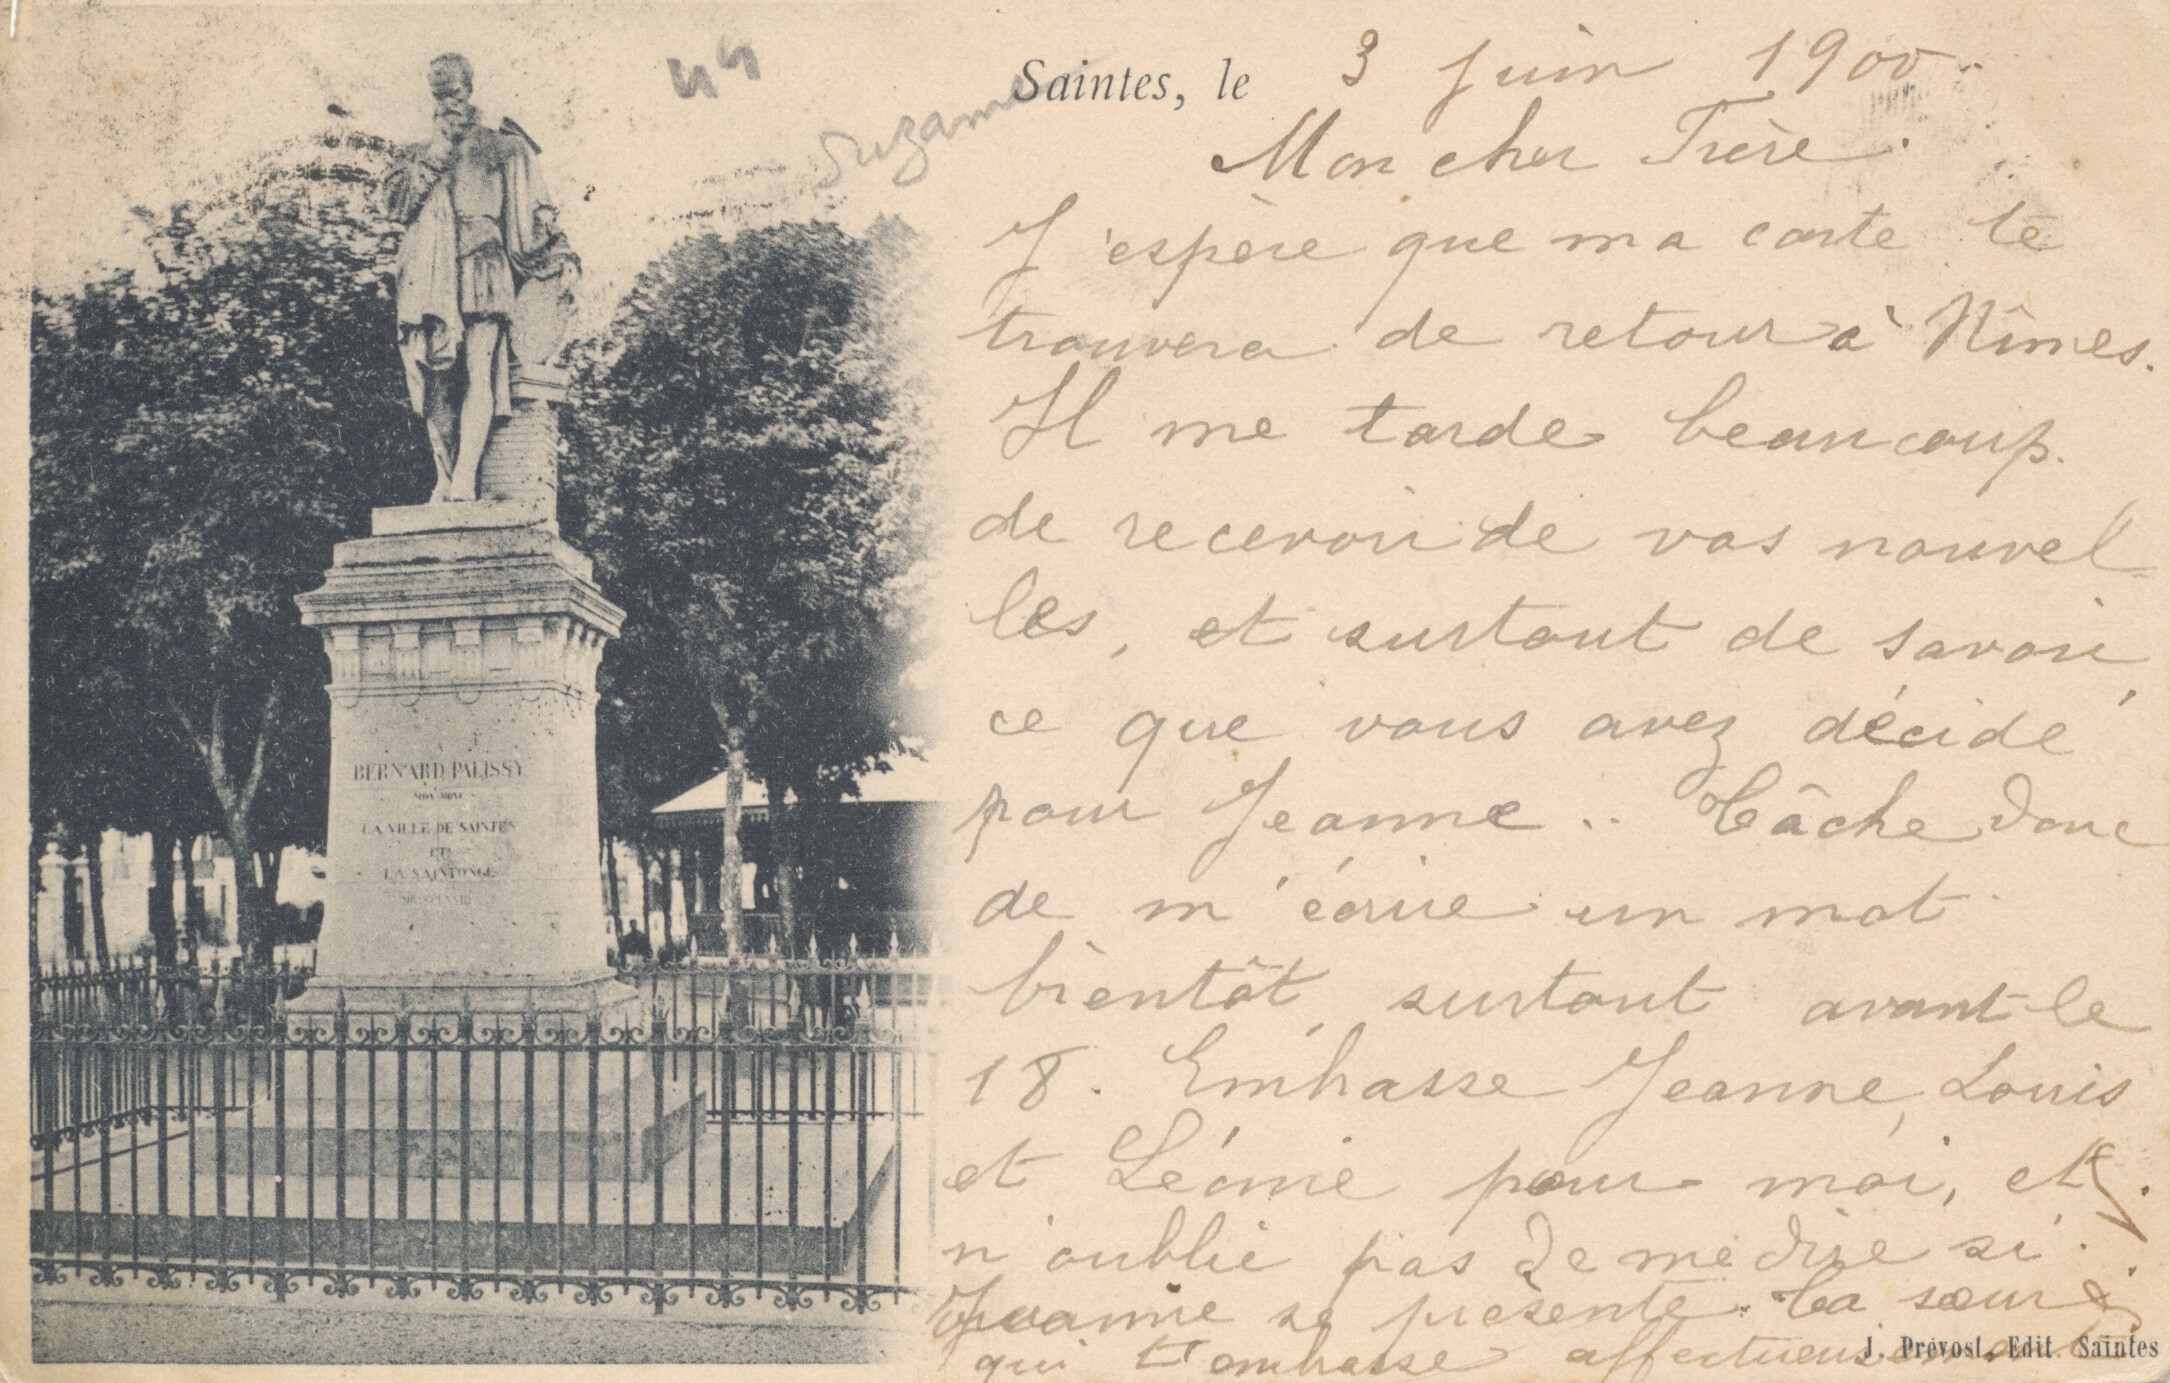 44
Suzanne
Saintes, le 3 juin 1900.
Mon cher Frère.
J'espère que ma carte te
trouvera de retour à Nîmes.
Il me tarde beaucoup
de recevoir de vos nouvel-
les, et surtout de savoir
ce que vous avez décidé
pour Jeanne.. Tâche donc
de m'écrire un mot
bientôt, surtout avant le
18. Embrasse Jeanne, Louis
et Léonie pour moi, et
n'oublie pas de me dire si
Jeanne se présente. Ta sœur
qui t'embrasse affectueusement
J. Prévost, Edit. Saintes
BERNARD PALISSY
LA VILLE DE SAINTES
ET
LA SAINTONGE